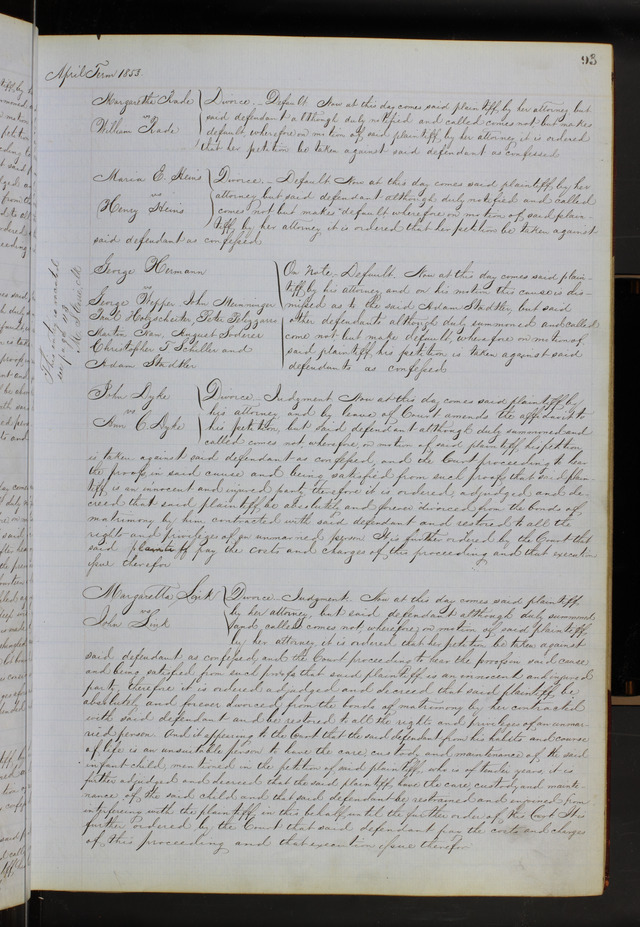 93
April Term 1853
Margarettha Trade
vs
William Trade
Divorce - Default Now at this day comes said plaintiff by her attorney but
said defendant although duly notified and called comes not but makes
default, wherefore on motion of said plaintiff by her attorney it is ordered
that her petition be taken against said defendant as confessed
Maria E. Heins
vs
Henry Heins
Divorce - Default Now at this day comes said plaintiff by her
attorney but said defendant although duly notified and called
comes not but makes default wherefore on motion of said plain-
tiff, by her attorney it is ordered that her petition be taken against
said defendant as confessed
George Hermann
vs
George Wepper John Menninger
Holzscheiter Peter
Martin August Soderer
Christopher T Schiller and
Adam Stadtler
On Note - Default. Now at this day comes said plain-
tiff by his attorney and on his motion this cause is dis-
missed as to the said Adam Stadtler, but said
other defendants although duly summoned and called
come not but make default, wherefore on motion of
said plaintiff, his petition is taken against said
defendants as confessed
John Dyke
vs
Ann C. Dyke
Divorce - Judgment Now at this day comes said plaintiff by
his attorney and by leave of Court amends the affidavit to
his petition, but said defendant although duly summoned and
called comes not wherefore, on motion of said plaintiff his petition
is taken against said defendant as confessed, and the Court proceeding to hear
the proofs in said cause and being satisfied from such proofs that said plain-
tiff, is an innocent and injured party therefore it is ordered, adjudged and de-
creed that said plaintiff, be absolutely and forever divorced from the bonds of
matrimony by him contracted with said defendant and restored to all the
rights and privileges of an unmarried person It is further ordered by the Court that
said plaintiff pay the costs and charges of this proceeding and that execution
issue therefor
Margaretta Link
vs
John Link
Divorce Judgment. Now at this day comes said plaintiff
by her attorney, but said defendant although duly summoned
and called comes not, wherefore, on motion of said plaintiff,
by her attorney it is ordered that her petition be taken against
said defendant as confessed, and the Court proceeding to hear the proofs in said cause
and being satisfied from such proofs that said plaintiff is an innocent and injured
party, therefore it is ordered adjudged and decreed that said plaintiff, be
absolutely and forever divorced, from the bonds of matrimony by her contracted
with said defendant and be restored to all the rights and privileges of an unmar-
ried person And it appearing to the Court that the said defendant from his habits and course
of life is an unsuitable person to have the care custody and maintenance of the said
infant child mentioned in the petition of said plaintiff, who is of tender years, it is
further adjudged and decreed that the said plaintiff, have the care, custody and mainte-
nance of the said child and that said defendant be restrained and enjoined from
interfering with the plaintiff in this behalf, until the further order of this Court It is
further ordered by the Court that said defendant pay the costs and charges
of this proceeding and that execution issue therefor